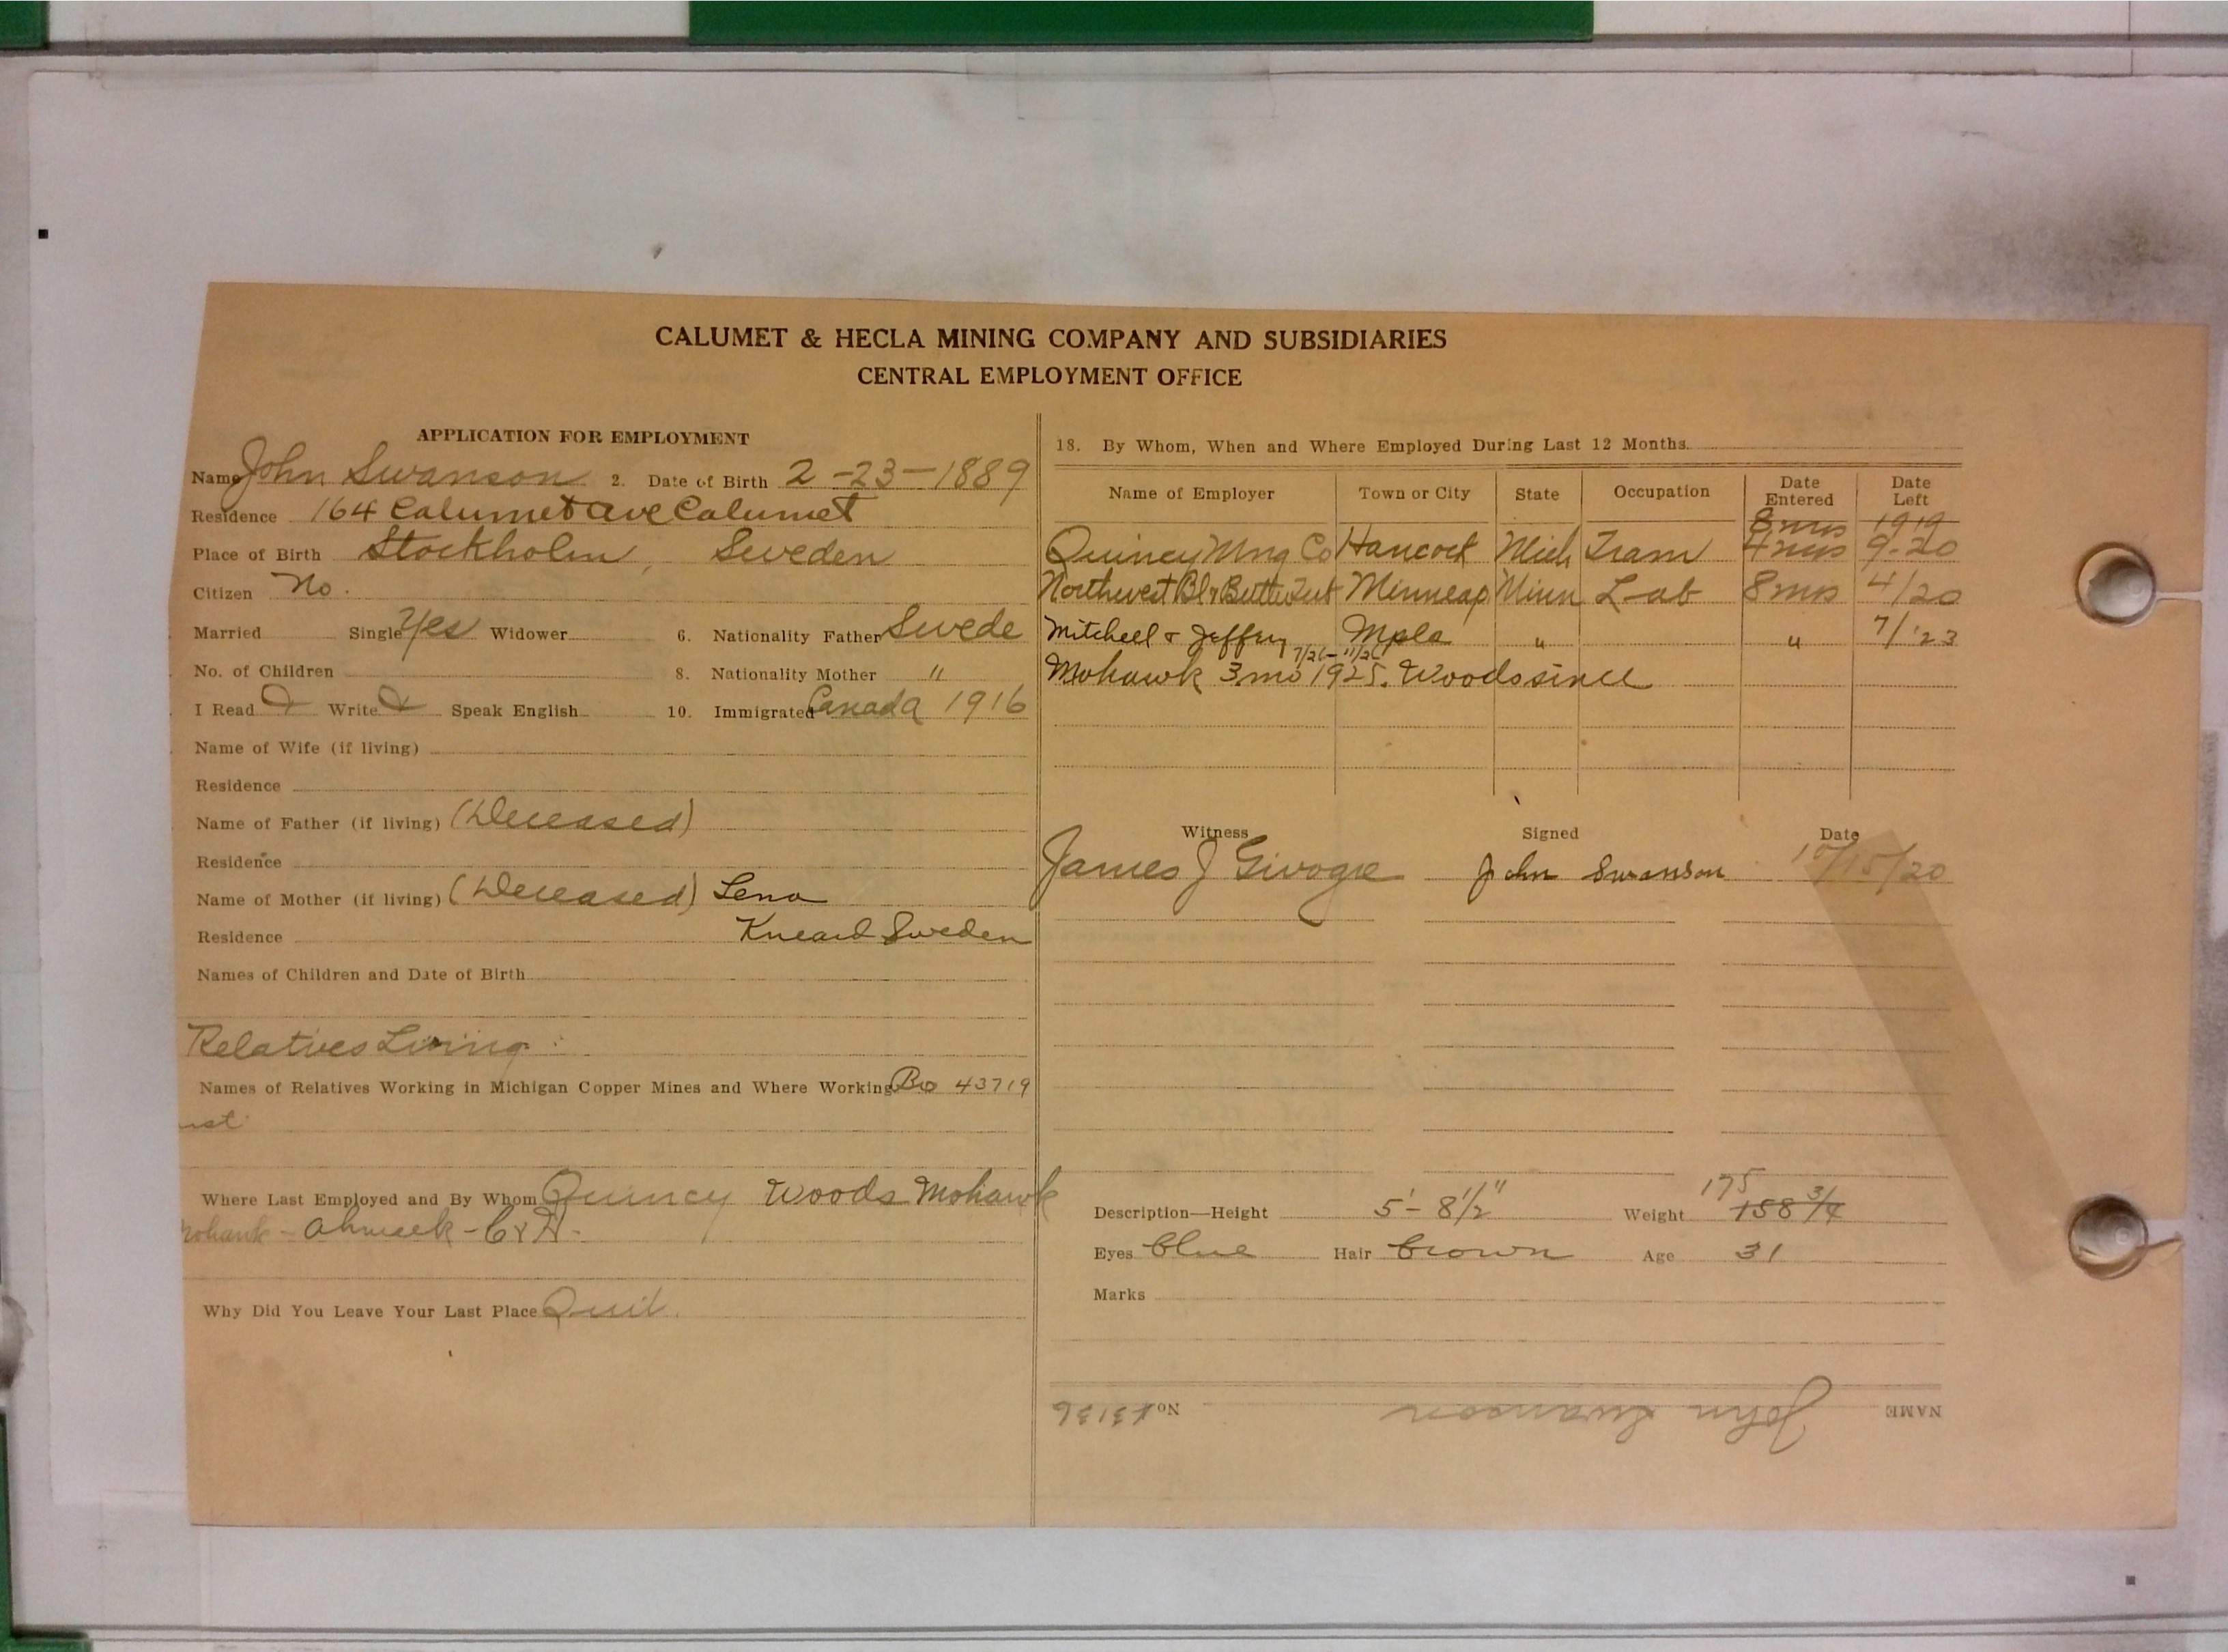 CALUMET & HECLA MINING COMPANY AND SUBSIDIARIES
CENTRAL EMPLOYMENT OFFICE
APPLICATION FOR EMPLOYMENT
Name John Swanson 2. Date of Birth 2-23-1889
Residence 164 Calumet ave Calumet
Place of Birth Stockholm, Sweden
Citizen No.
Married Single Yes Widower 6. Nationality Father Swede
No. of Children 8. Nationality Mother "
I Read Write Speak English 10. Immigrated Canada 1916
Name of Wife (if living)
Residence
Name of Father (if living) (Deceased)
Residence
Name of Mother (if living) (Deceased) Lena
Residence Sweden
Names of Children and Date of Birth
Relatives Living
Names of Relatives Working in Michigan Copper Mines and Where Working Bro 43719
Where Last Employed and By Whom Quincy Woods Mohawk
Mohawk - Ahmeek - C & H -
Why Did You Leave Your Last Place Quit.
18. By Whom, When and Where Employed During Last 12 Months
Name of Employer Town or City State Occupation Date Entered Date Left
8 mos 1919
Quincy Mng Co Hancock Mich Tram 4 mos 9-20
Northwest Bl & Butter Tub Minneap Minn Lab 8 mos 4/20
Mitchell & Jeffery Mpls " " 7/'23
7/26-11/26
Mohawk 3 mo 1925. Woods since
Witness Signed Date
James J John Swanson 10/15/20
175
Description—Height 5'-8 1/2" Weight 158 3/4
Eyes blue Hair brown Age 31
Marks
NAME John Swanson No 43136